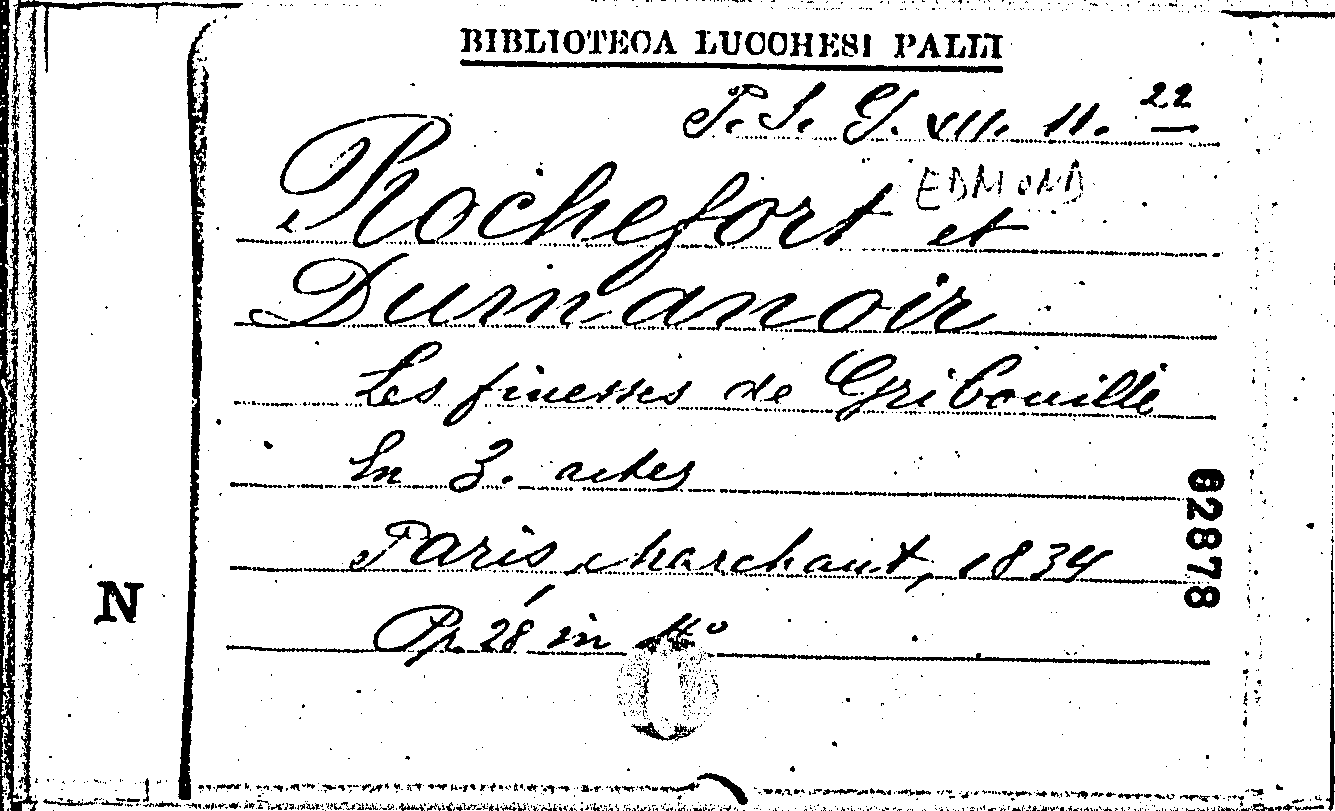 BIBLIOTECA LUCCHESI PALLI
P. S. G. XII. 11. 22
EDMOND
Rochefort et
Dumanoir
Les finesses de Gribouille
En 3. actes
Paris, Marchant, 1834
Pp. 28 in 4º
62878
N